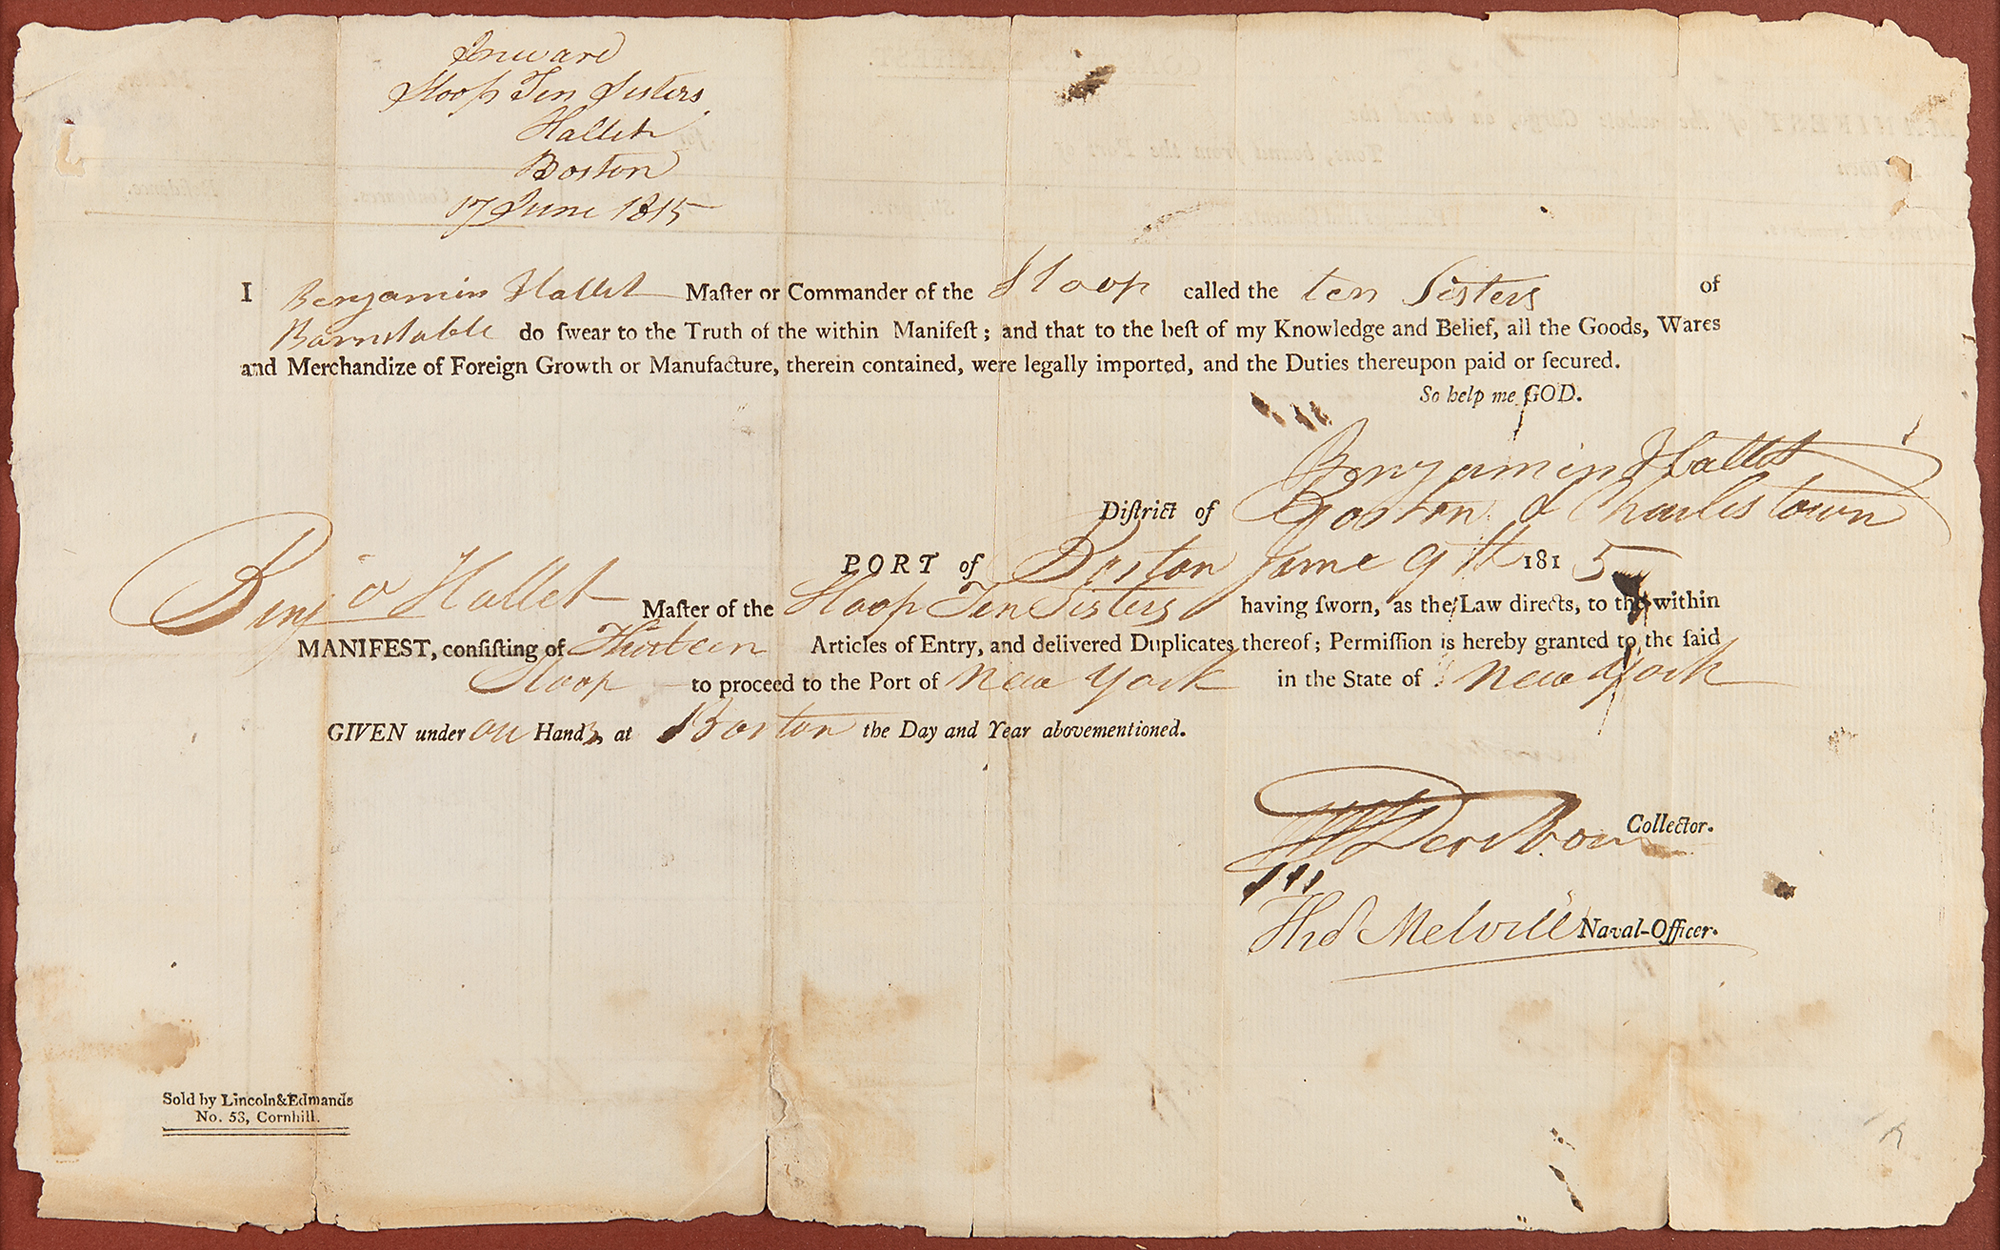 Inward
Sloop Ten Sisters
Hallet
Boston
17 June 1815
I Benjamin Hallet Maſter or Commander of the Sloop called the ten Sisters of
Barnstable do ſwear to the Truth of the within Manifeſt; and that to the beſt of my Knowledge and Belief, all the Goods, Wares
and Merchandize of Foreign Growth or Manufacture, therein contained, were legally imported, and the Duties thereupon paid or ſecured.
So help me GOD.
Benjamin Hallet
Diſtrict of Boston & Charlestown
PORT of Boston June 9th 1815
Benja Hallet Maſter of the Sloop Ten Sisters having ſworn, as the Law directs, to the within
MANIFEST, conſiſting of Thirteen Articles of Entry, and delivered Duplicates thereof; Permiſſion is hereby granted to the ſaid
Sloop to proceed to the Port of New York in the State of New York
GIVEN under our Hands, at Boston the Day and Year abovementioned.
Collector.
Thos Melvill Naval-Officer.
Sold by Lincoln & Edmands
No. 53, Cornhill.